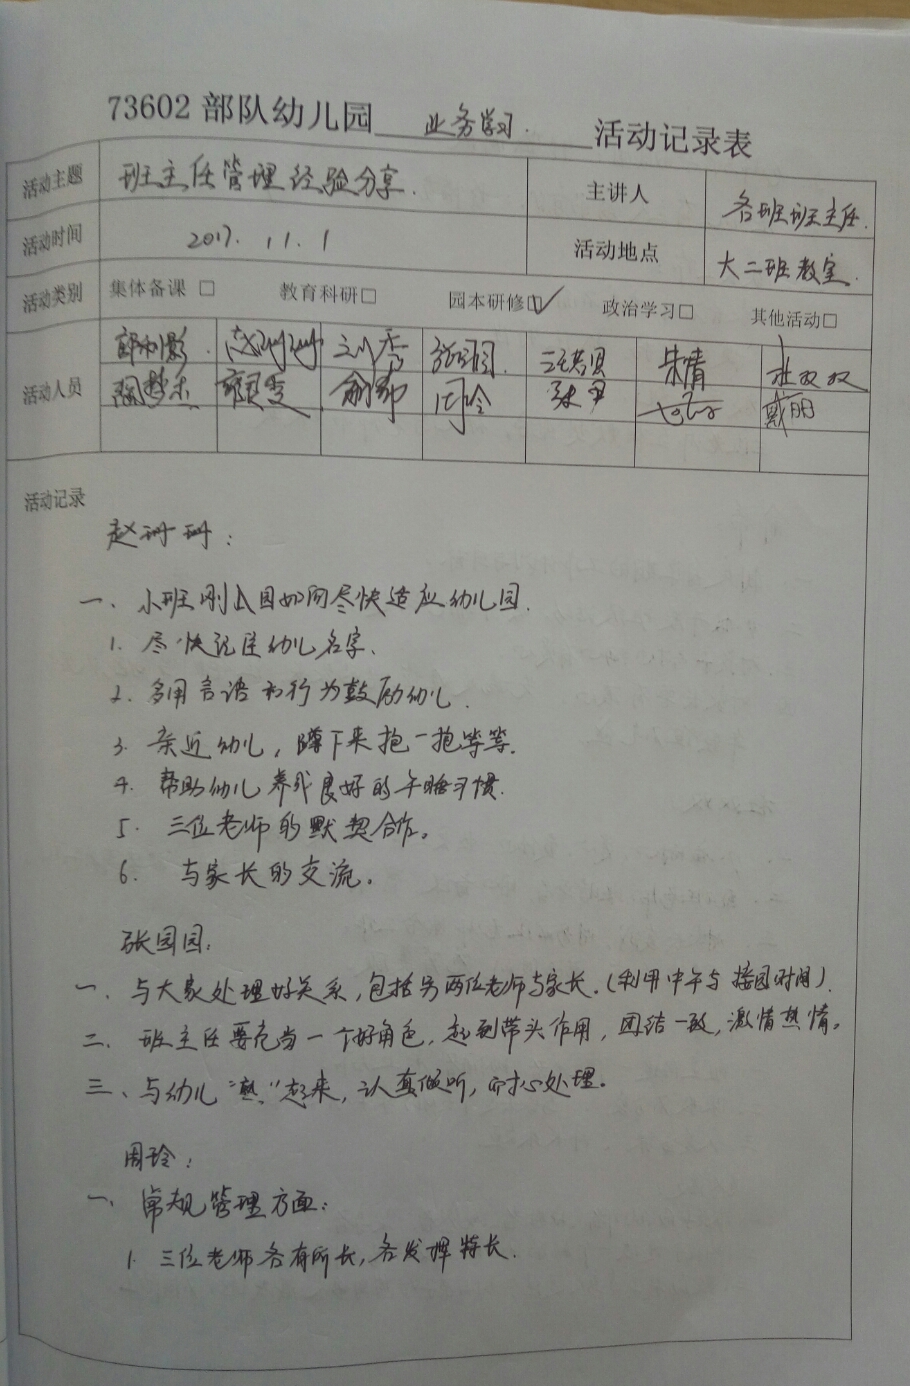 73602部队幼儿园 业务学习. 活动记录表
活动主题 班主任管理经验分享. 主讲人 各班班主任.
活动时间 2017. 11. 1 活动地点 大二班教室.
活动类别 集体备课 □ 教育科研□ 园本研修☑ 政治学习□ 其他活动□
活动人员 赵珊珊 刘秀 张园园 朱倩 杜双双
周玲 戴明
活动记录
赵珊珊：
一、小班刚入园如何尽快适应幼儿园.
1. 尽快记住幼儿名字.
2. 多用言语和行为鼓励幼儿.
3. 亲近幼儿，蹲下来抱一抱等等.
4. 帮助幼儿养成良好的午睡习惯.
5. 三位老师的默契合作。
6. 与家长的交流。
张园园：
一、与大家处理好关系，包括另两位老师与家长.(利用中午与接园时间).
二、班主任要充当一个好角色，起到带头作用，团结一致，激情热情。
三、与幼儿“熟”起来，认真倾听，耐心处理。
周玲：
一、常规管理方面：
1. 三位老师各有所长，各发挥特长.